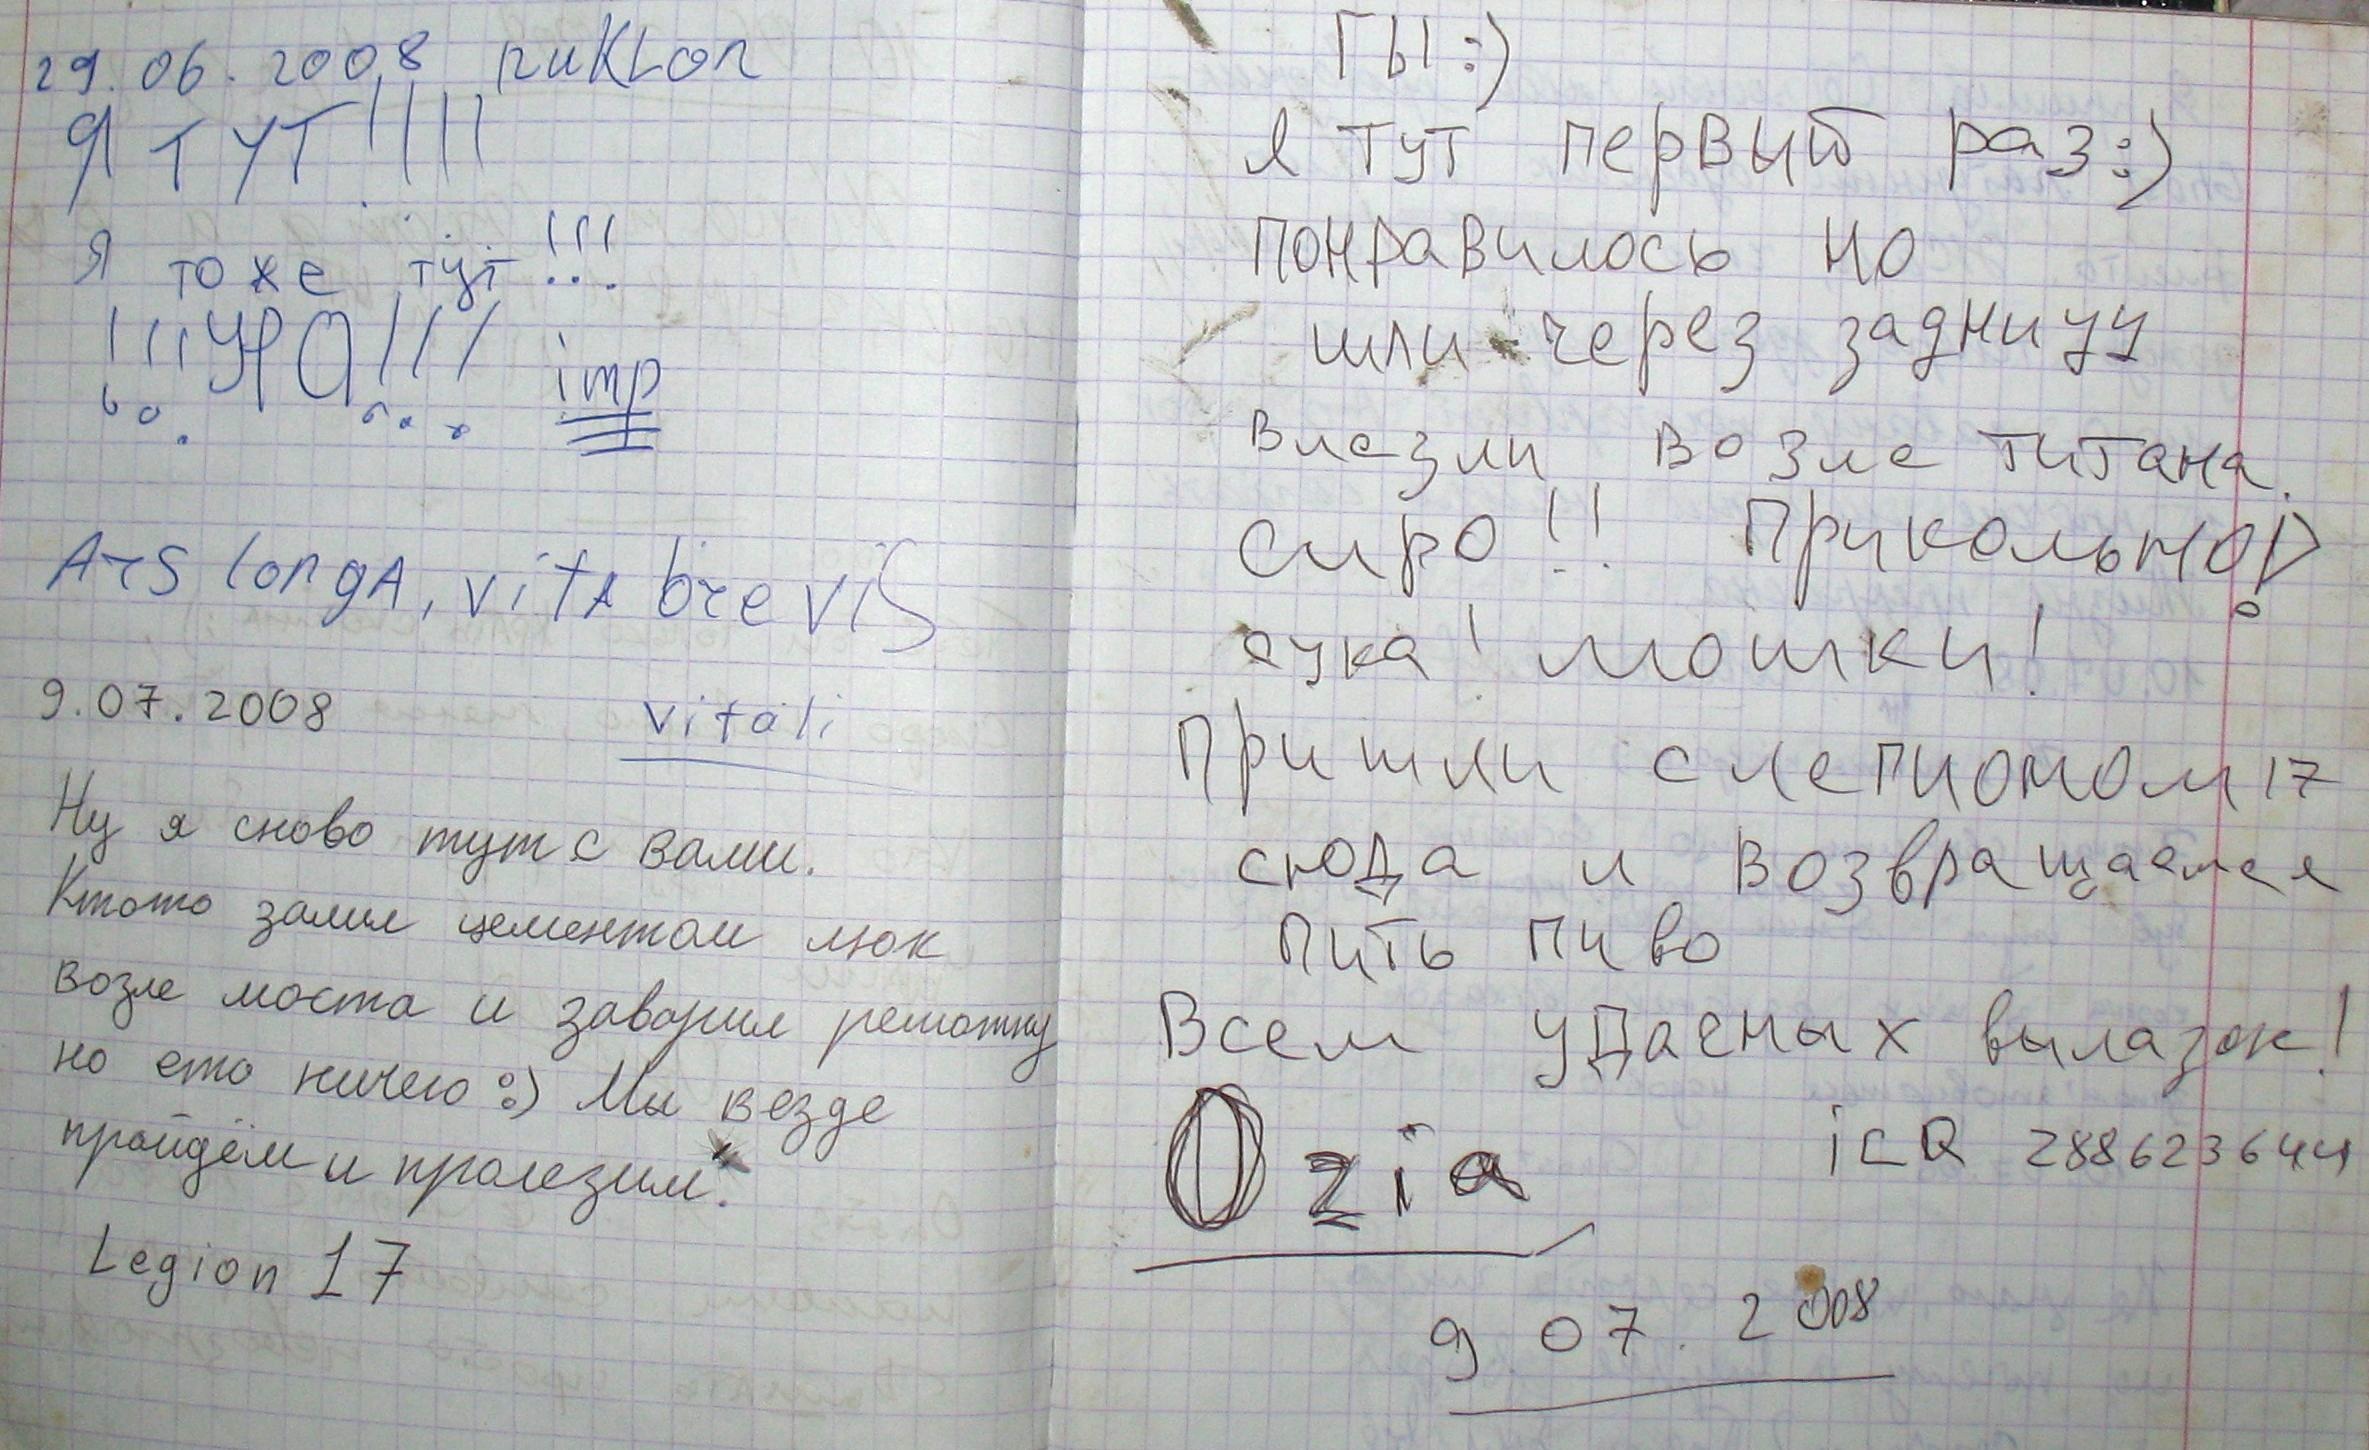 29.06.2008 ziiKLon
Я ТУТ!!!!
Я тоже тут!!!
!!!УРА!!! imp
Ars longA, vitA brevis
9.07.2008 vitali
Ну я сново тут с вами.
Ктото залил цементом люк
возле моста и заварил решотку
но ето ничего :) Мы везде
пройдём и пролезим.
Legion 17
ГЫ :)
Я тут первый раз :)
понравилось но
шли через задницу
влезли возле титана.
сиро!! Прикольно!
сука! мошки!
Пришли с легионом 17
сюда и возвращаемся
пить пиво
Всем удачных вылазок!
Ozia icQ 288623644
9.07.2008